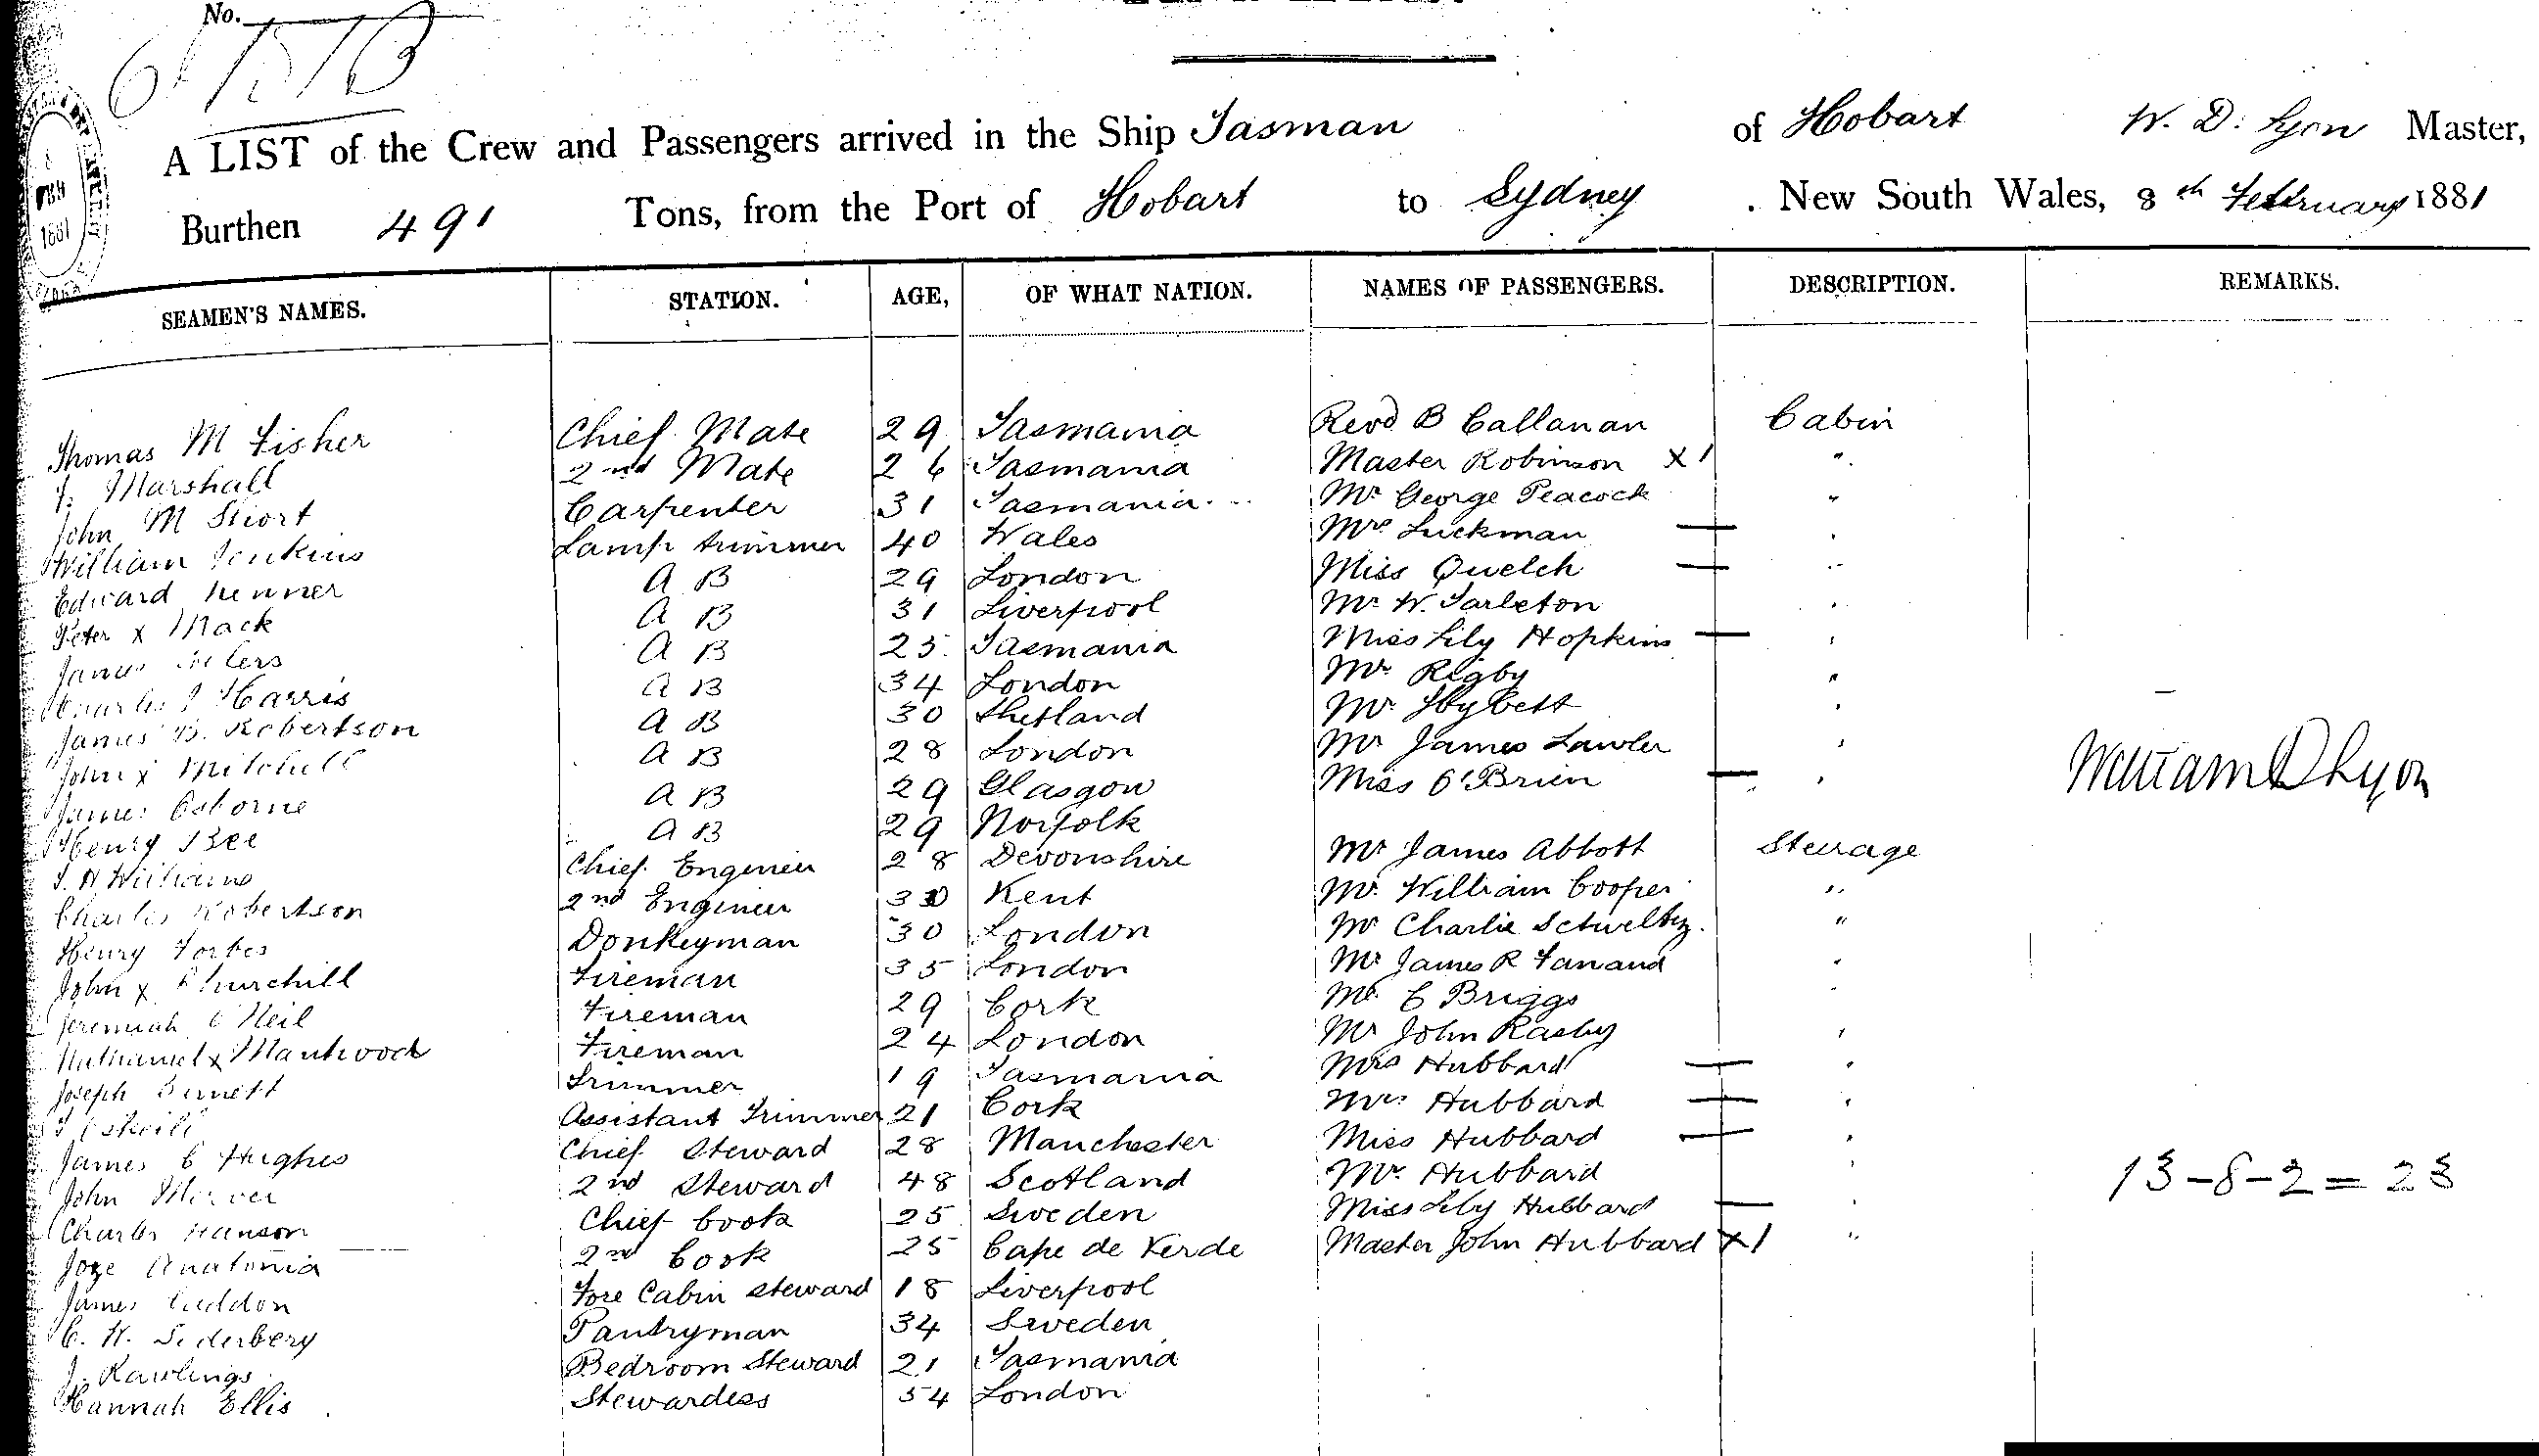 No.
A LIST of the Crew and Passengers arrived in the Ship Tasman of Hobart W. D. Lyon Master,
Burthen 491 Tons, from the Port of Hobart to Sydney . New South Wales, 8th February 1881
SEAMEN'S NAMES. STATION. AGE, OF WHAT NATION. NAMES OF PASSENGERS. DESCRIPTION. REMARKS.
Thomas M Fisher Chief Mate 29 Tasmania Revd B Callanan Cabin
Marshall 2nd Mate 26 Tasmania Master Robinson X1 "
John M Stort Carpenter 31 Tasmania Mr George Peacock "
William Jenkins Lamp trimmer 40 Wales Mrs Luckman — "
Edward A B 29 London Miss Quelch — "
Peter x Mack A B 31 Liverpool Mr W. Tarleton "
James A B 25 Tasmania Miss Lily Hopkins — "
Charles Harris A B 34 London Mr Rigby "
James B. Robertson A B 30 Shetland Mr "
John x Mitchell A B 28 London Mr James Lawler "
James Osborne A B 29 Glasgow Miss O'Brien — "
William D Lyon
Henry Bee A B 29 Norfolk Mr James Abbott Steerage
Williams Chief Engineer 28 Devonshire Mr. William Cooper "
Charles Robertson 2nd Engineer Kent Mr Charlie "
Henry Forbes Donkeyman 30 London Mr James R "
John x Churchill Fireman 35 London Mr. C Briggs "
Jeremiah O'Neil Fireman 29 Cork Mr John "
Nathaniel x Fireman 24 London Mrs Hubbard — "
Joseph Burnett Trimmer 19 Tasmania Mrs Hubbard — "
Assistant Trimmer 21 Cork Miss Hubbard — "
James C Hughes Chief Steward 28 Manchester Mr. Hubbard "
John 2nd Steward 48 Scotland Miss Lily Hubbard — "
Charles Hanson Chief Cook 25 Sweden Master John Hubbard X1 "
13-8-2=23
Joze Anatonia 2nd Cook 25 Cape de Verde
James Cuddon Fore Cabin Steward 18 Liverpool
C. W. Sederbery Pantryman 34 Sweden
J. Rawlings Bedroom Steward 21 Tasmania
Hannah Ellis Stewardess 54 London